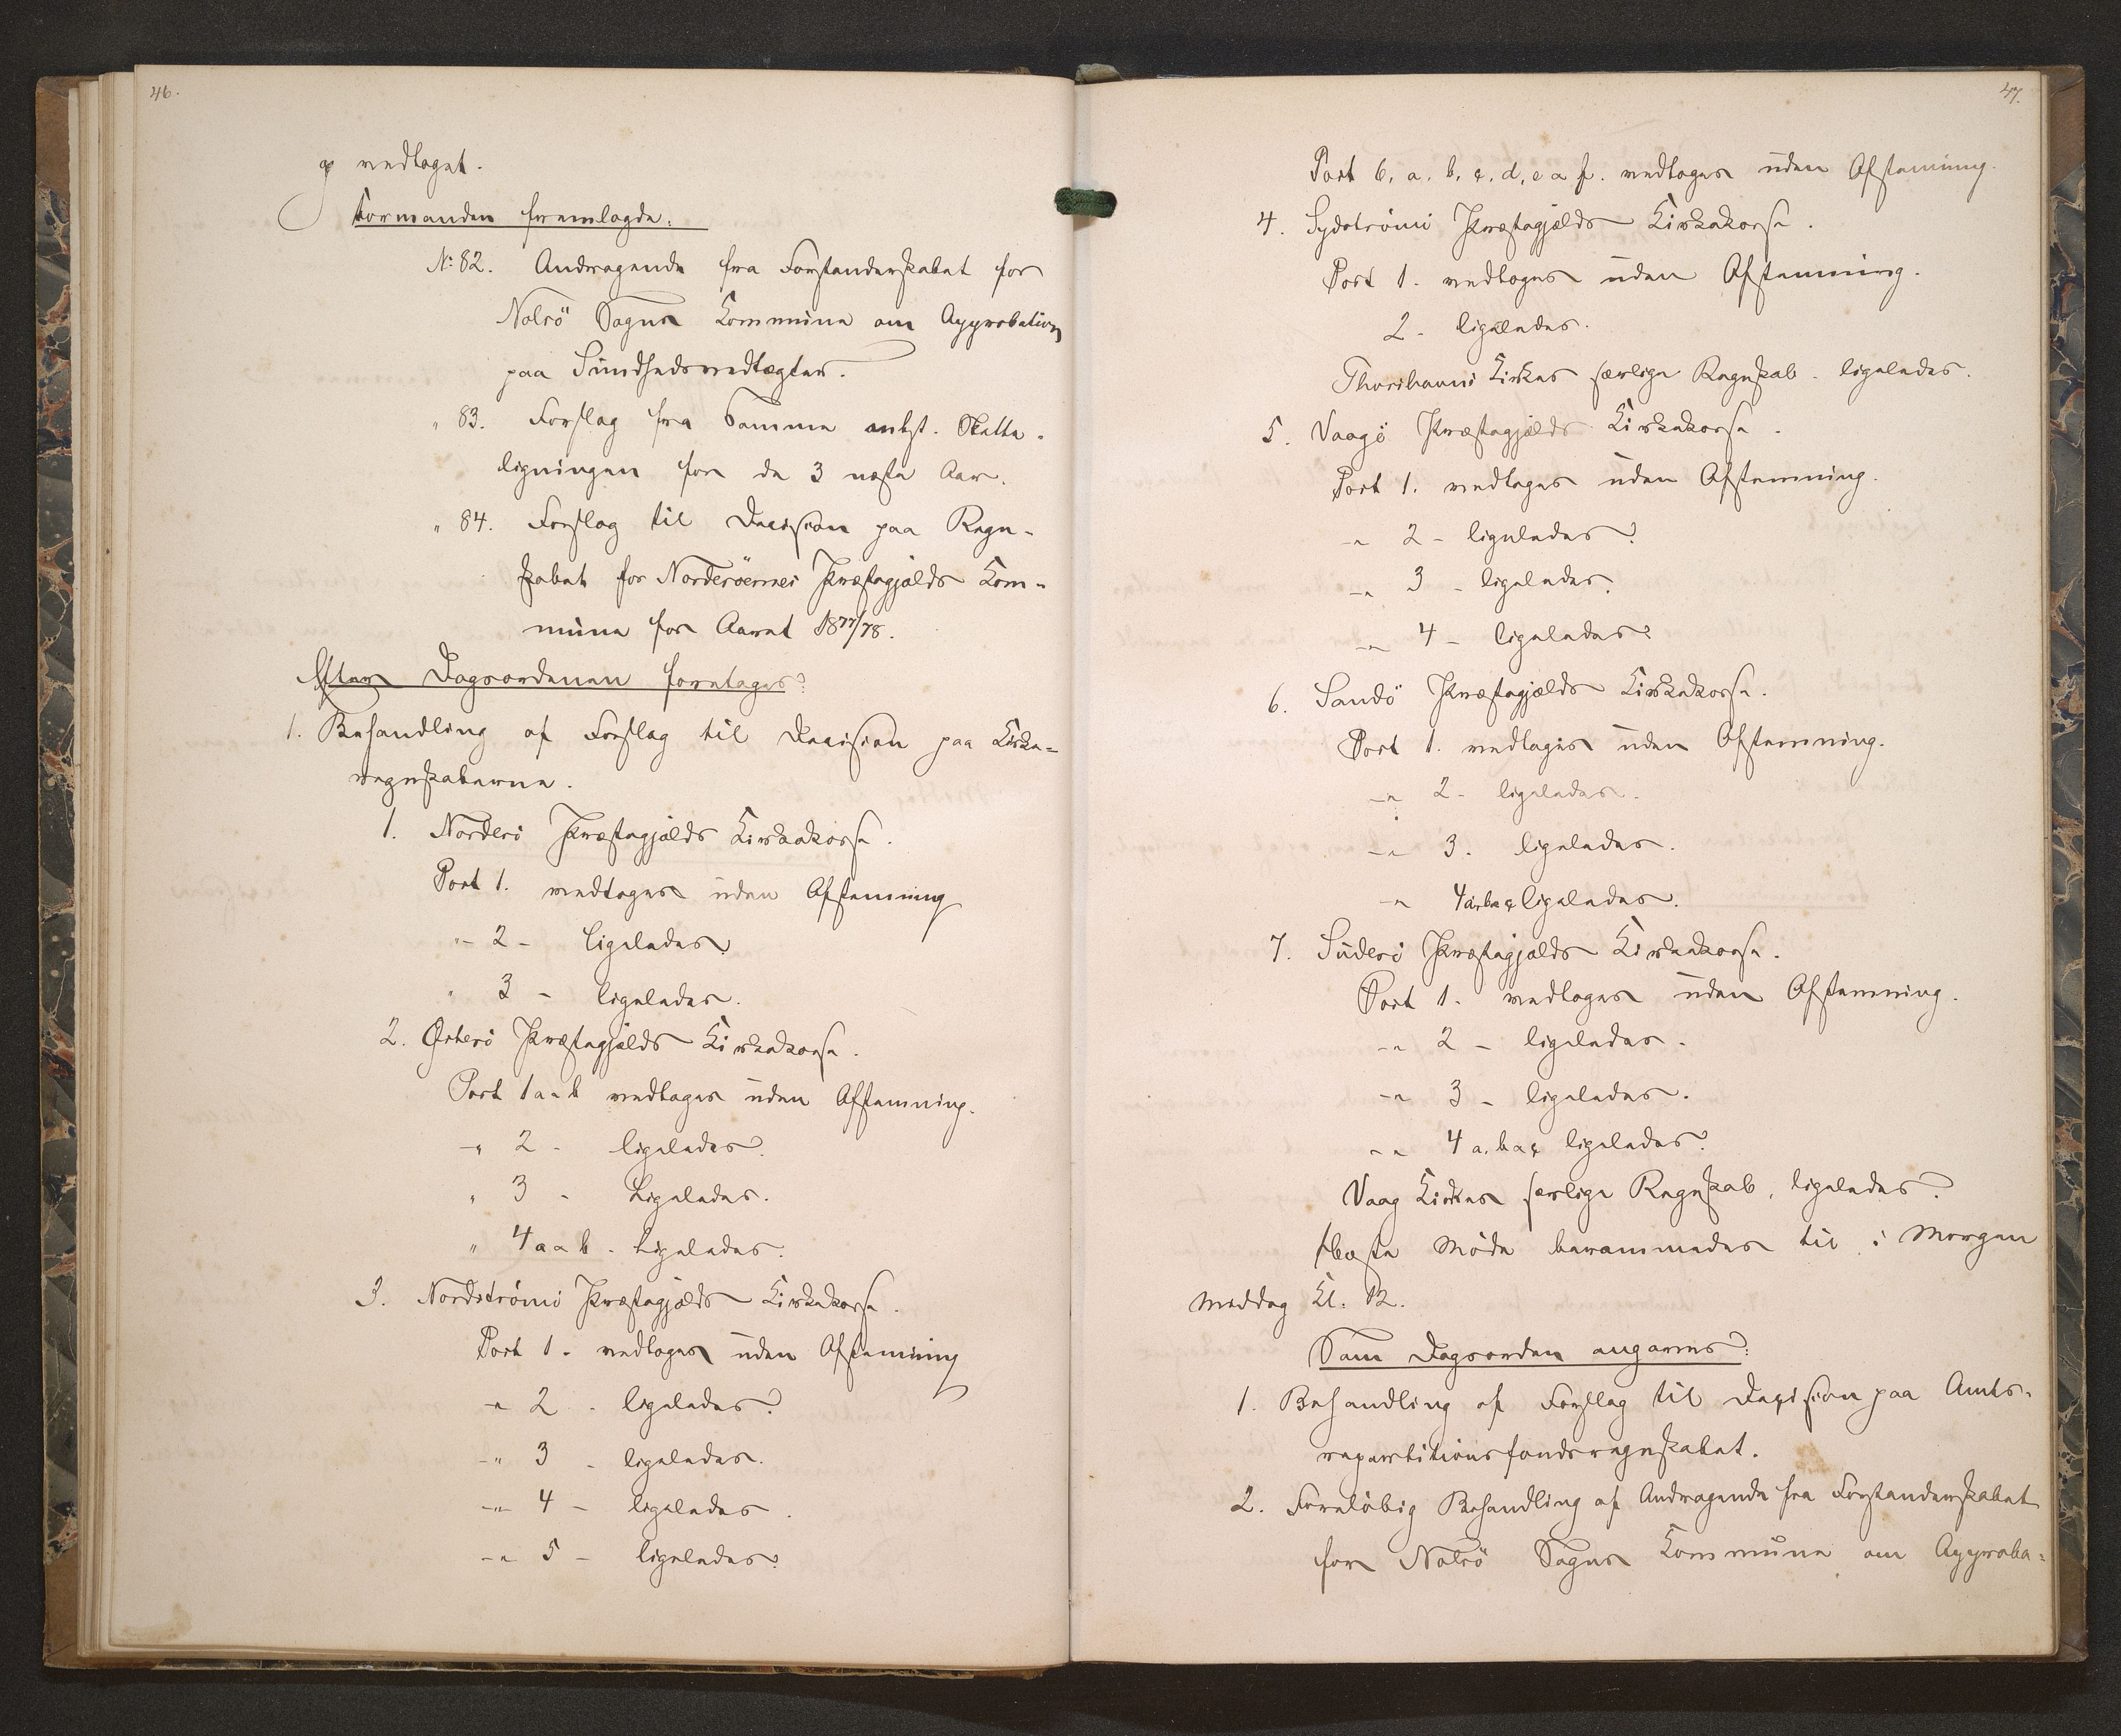 46.
og vedtaget.
Formanden fremlagde:
No 82. Andragende fra Forstanderskabet for
Nolsö Sogns Kommune om Approbation
paa Sundhedsvedtægter.
" 83. Forslag fra Samme anlgd. Skatte-
ligningen for de 3 næste Aar.
" 84. Forslag til Decision paa Regn-
skabet for Norderöernes Præstegjælds Kom-
mune for Aaret 1877/78.
Efter Dagsordenen foretoges:
1. Behandling af Forslag til Decision paa Kirke-
regnskaberne.
1. Norderö Præstegjælds Kirkekasse.
Post 1. vedtoges uden Afstemning
"- 2 - ligeledes.
" 3 - ligeledes.
2. Österö Præstegjælds Kirkekasse.
Post 1 a & b vedtoges uden Afstemning.
-" 2 - ligeledes.
" 3 - Ligeledes.
" 4 a & b - Ligeledes.
3. Nordströmö Præstegjælds Kirkekasse.
Post 1 - vedtoges uden Afstemning
-" 2 - ligeledes.
-" 3 - ligeledes.
-"- 4 - ligeledes.
-" 5 - ligeledes.
47.
Post 6, a. b. c. d, e & f. vedtoges uden Afstemning.
4. Sydströmö Præstegjælds Kirkekasse.
Post 1. vedtoges uden Afstemning.
2 - ligeledes.
Thorshavns Kirkes særlige Regnskab - ligeledes.
5. Vaagö Præstegjælds Kirkekasse.
Post 1. vedtoges uden Afstemning.
-" 2 - ligeledes.
-" 3 - ligeledes.
-" 4 - ligeledes.
6. Sandö Præstegjælds Kirkekasse.
Post 1. vedtoges uden Afstemning.
-" 2 - ligeledes.
-" 3. ligeledes.
-" 4 a, b & c ligeledes.
7. Suderö Præstegjælds Kirkekasse.
Post 1. vedtoges uden Afstemning.
-" 2 - ligeledes.
-" 3 - ligeledes.
-" 4 a, b & c ligeledes.
Vaag Kirkes særlige Regnskab, ligeledes.
Næste Möde berammedes til i Morgen
Middag Kl. 12.
Som Dagsorden angaves:
1. Behandling af Forslag til Decision paa Amts-
repartitionsfondsregnskabet.
2. Foreløbig Behandling af Andragende fra Forstanderskabet
for Nolsö Sogns Kommune om Approba-